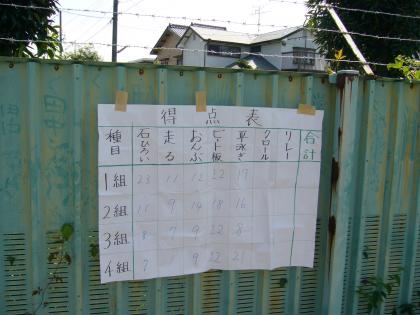 得点表
種目 石ひろい 走る おんぶ ビート板 平泳ぎ クロール リレー 合計
1組 23 11 12 22 19
2組 11 9 14 18 16
3組 8 7 9 22 8
4組 7 1 9 22 21